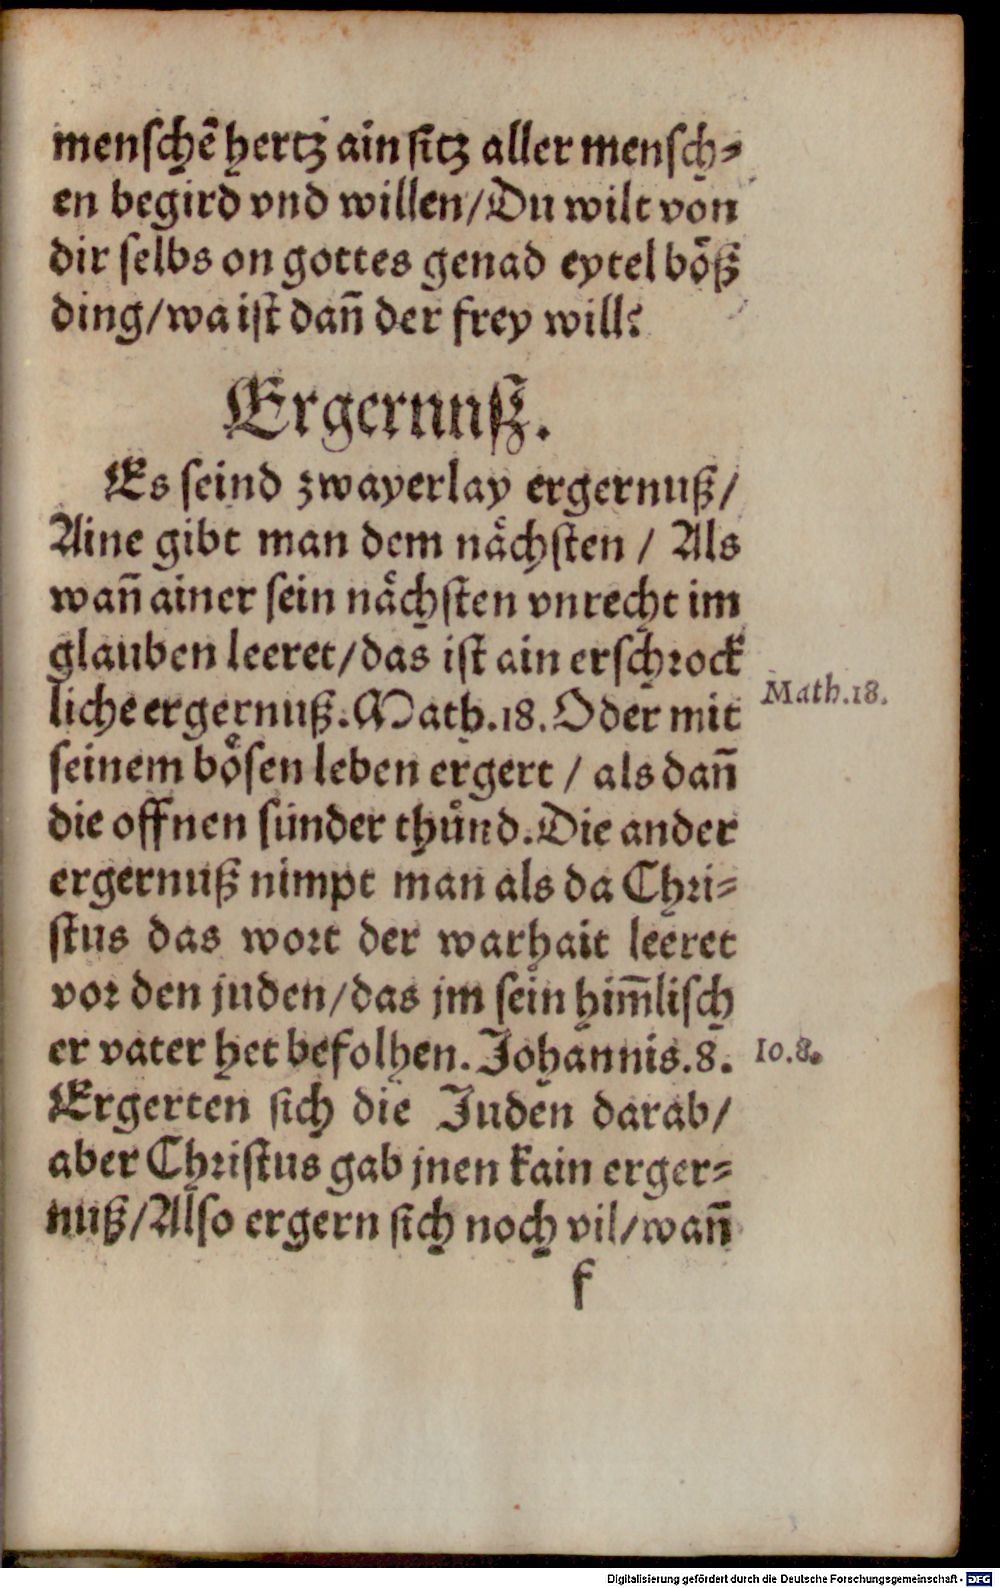 menschē hertz ain sitz aller mensch⸗
en begird vnd willen/Du wilt von
dir selbs on gottes genad eytel böß
ding/wa ist dañ der frey will?
Ergernuß.
Es seind zwayerlay ergernuß/
Aine gibt man dem nächsten / Als
wañ ainer sein nächsten vnrecht im
glauben leeret/das ist ain erschrock
liche ergernuß.Math.18.Oder mit
Math.18.
seinem bösen leben ergert / als dañ
die offnen sünder thůnd.Die ander
ergernuß nimpt man als da Chri⸗
stus das wort der warhait leeret
vor den juden/das jm sein him̄lisch
er vater het befolhen.Johannis.8.
Io.8.
Ergerten sich die Juden darab/
aber Christus gab jnen kain erger⸗
nuß/Also ergern sich noch vil/wañ
f
Digitalisierung gefördert durch die Deutsche Forschungsgemeinschaft - DFG